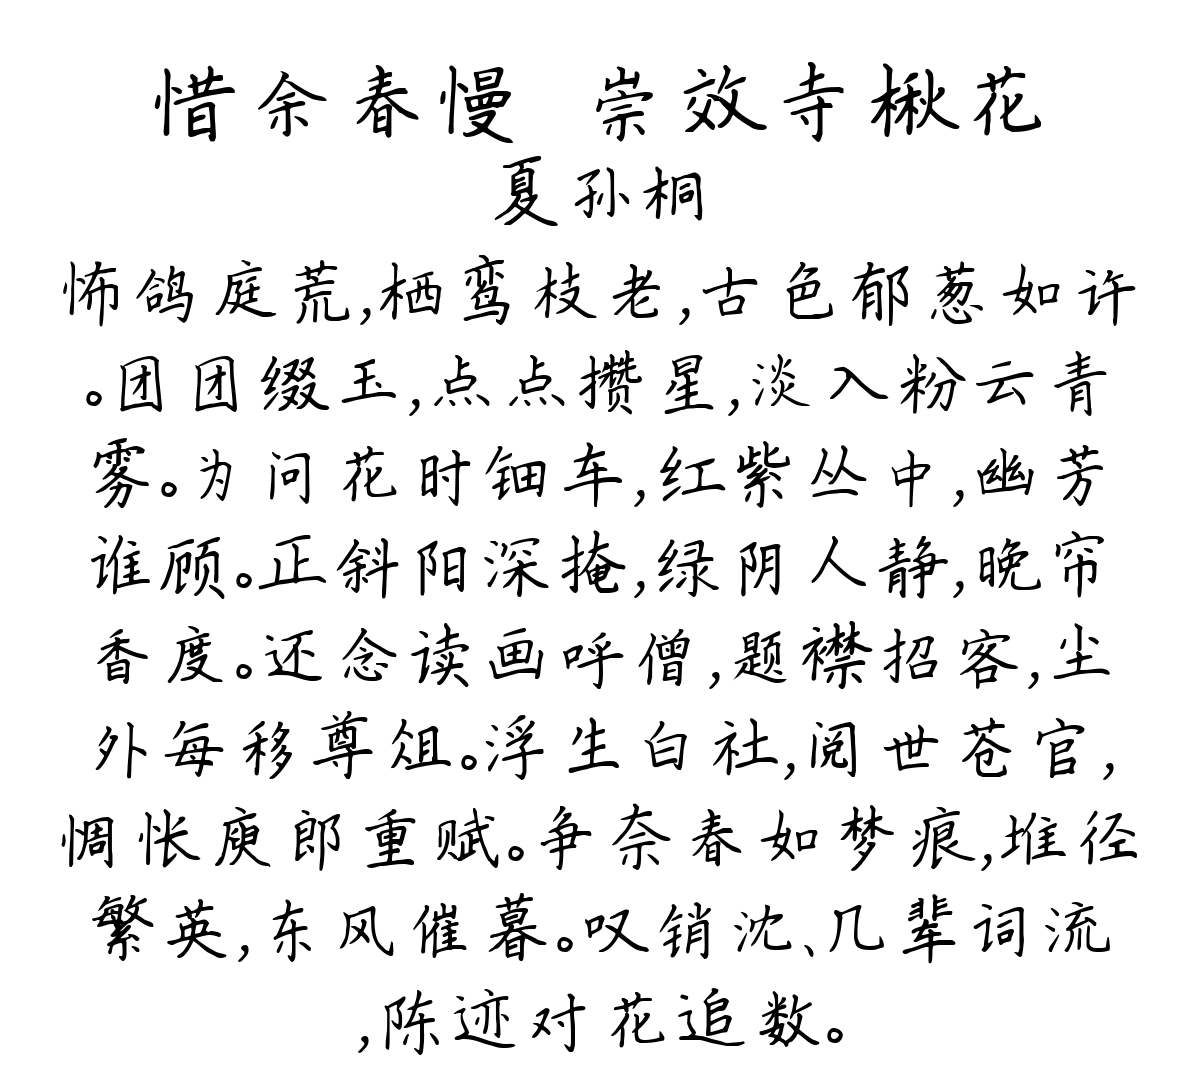 惜余春慢 崇效寺楸花
夏孙桐
怖鸽庭荒,栖鸾枝老,古色郁葱如许
。团团缀玉,点点攒星,淡入粉云青
雾。为问花时钿车,红紫丛中,幽芳
谁顾。正斜阳深掩,绿阴人静,晚帘
香度。还念读画呼僧,题襟招客,尘
外每移尊俎。浮生白社,阅世苍官,
惆怅庾郎重赋。争奈春如梦痕,堆径
繁英,东风催暮。叹销沈、几辈词流
,陈迹对花追数。